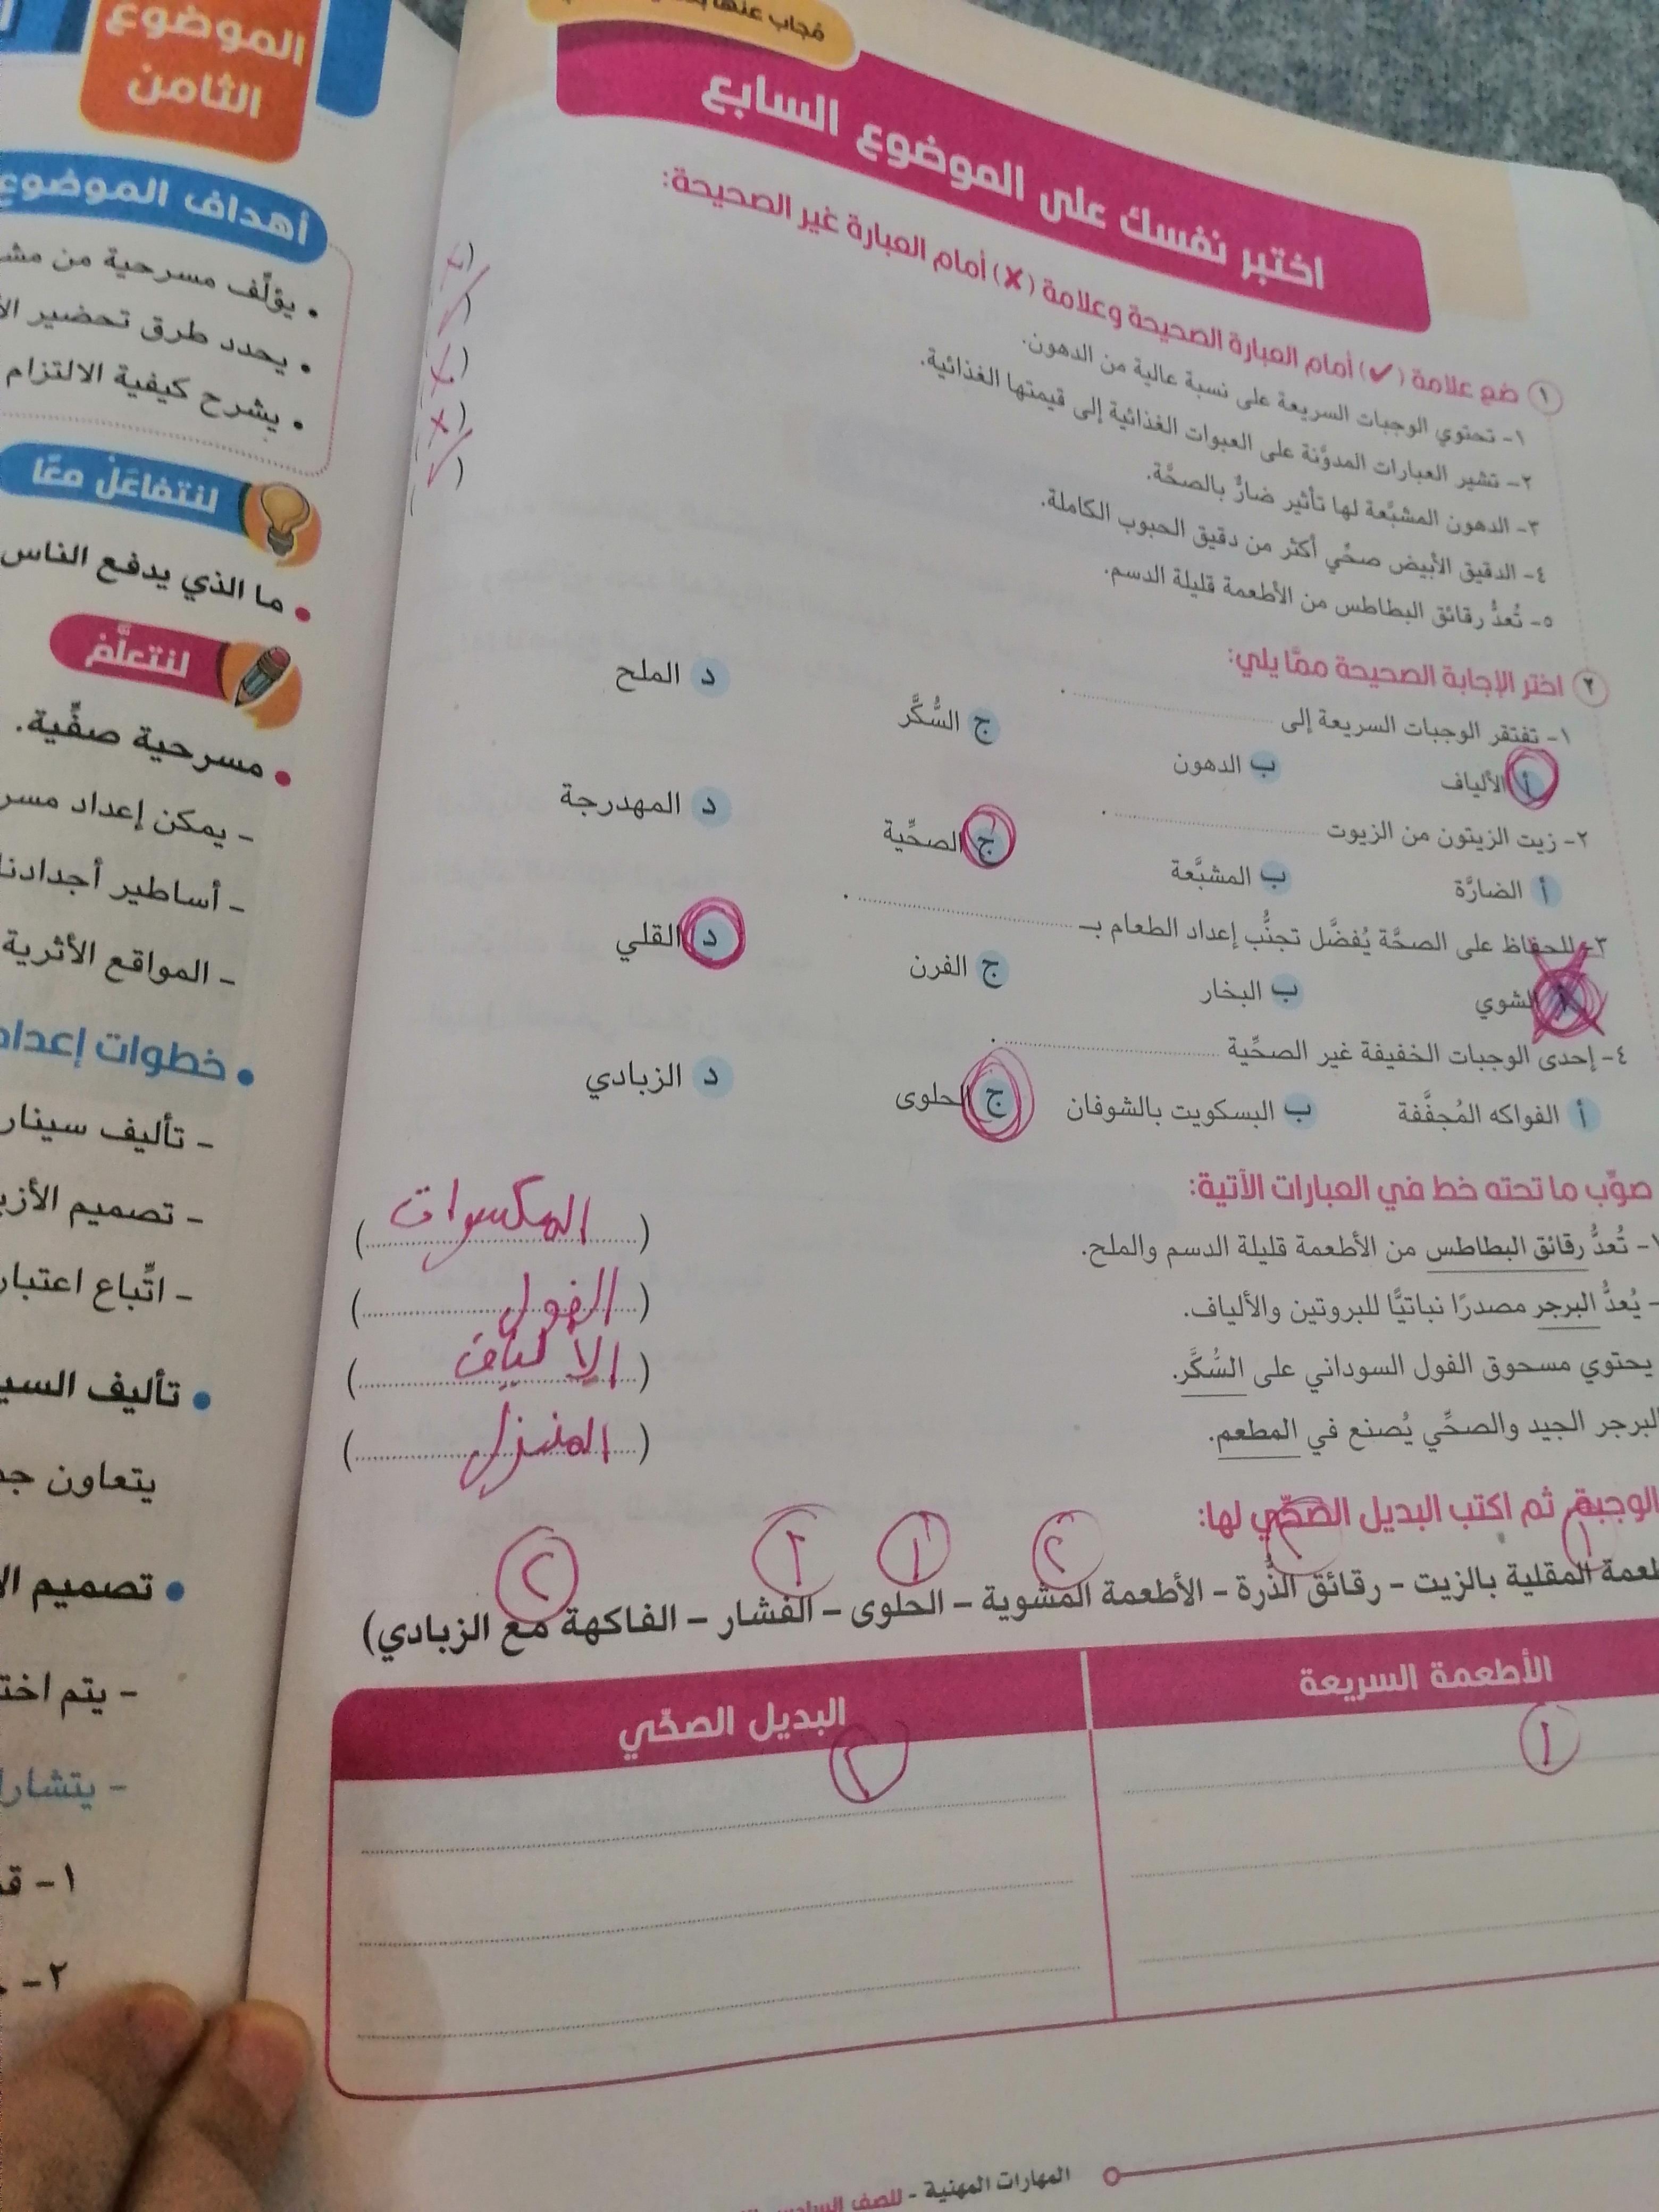 مُجاب عنها
اختبر نفسك على الموضوع السابع
١ ضع علامة (✓) أمام العبارة الصحيحة وعلامة (✗) أمام العبارة غير الصحيحة:
١- تحتوي الوجبات السريعة على نسبة عالية من الدهون.
٢- تشير العبارات المدوَّنة على العبوات الغذائية إلى قيمتها الغذائية.
٣- الدهون المشبَّعة لها تأثير ضارٌّ بالصحَّة.
٤- الدقيق الأبيض صحِّي أكثر من دقيق الحبوب الكاملة.
٥- تُعدُّ رقائق البطاطس من الأطعمة قليلة الدسم.
٢ اختر الإجابة الصحيحة ممَّا يلي:
١- تفتقر الوجبات السريعة إلى
أ الألياف ب الدهون ج السُّكَّر د الملح
٢- زيت الزيتون من الزيوت
أ الضارَّة ب المشبَّعة ج الصحِّية د المهدرجة
٣- للحفاظ على الصحَّة يُفضَّل تجنُّب إعداد الطعام بـ
الشوي ب البخار ج الفرن د القلي
٤- إحدى الوجبات الخفيفة غير الصحِّية
أ الفواكه المُجفَّفة ب البسكويت بالشوفان ج الحلوى د الزبادي
صوِّب ما تحته خط في العبارات الآتية:
١- تُعدُّ رقائق البطاطس من الأطعمة قليلة الدسم والملح. (المكسرات)
- يُعدُّ البرجر مصدرًا نباتيًّا للبروتين والألياف. (الفول)
يحتوي مسحوق الفول السوداني على السُّكَّر. (الالياف)
البرجر الجيد والصحِّي يُصنع في المطعم. (المنزل)
الوجبة، ثم اكتب البديل الصحِّي لها:
١ ٢ ٢ ١ ٢ ٢
المقلية بالزيت – رقائق الذُّرة – الأطعمة المشوية – الحلوى – الفشار – الفاكهة مع الزبادي)
الأطعمة السريعة البديل الصحِّي
١ ٢
المهارات المهنية - للصف السادس
الموضوع
الثامن
أهداف الموضوع
• يؤلِّف مسرحية من
• يحدد طرق تحضير
• يشرح كيفية الالتزام
لنتفاعَلْ معًا
• ما الذي يدفع الناس
لنتعلَّمْ
• مسرحية صفِّية.
- يمكن إعداد
- أساطير أجدادنا
- المواقع الأثرية
• خطوات إعداد
- تأليف
- تصميم
- اتِّباع
• تأليف
يتعاون
• تصميم
- يتم
-
١-
٢-